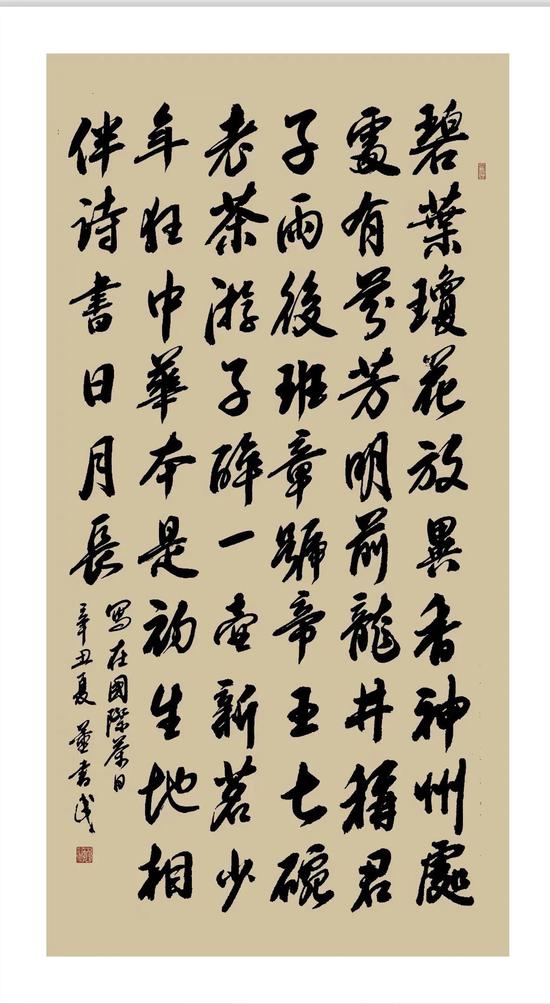 碧葉瓊花放異香神州處
處有芬芳明前龍井稱君
子雨後班章號帝王七碗
老茶游子醉一壺新茗少
年狂中華本是初生地相
伴诗書日月長
寫在國際茶日
辛丑夏